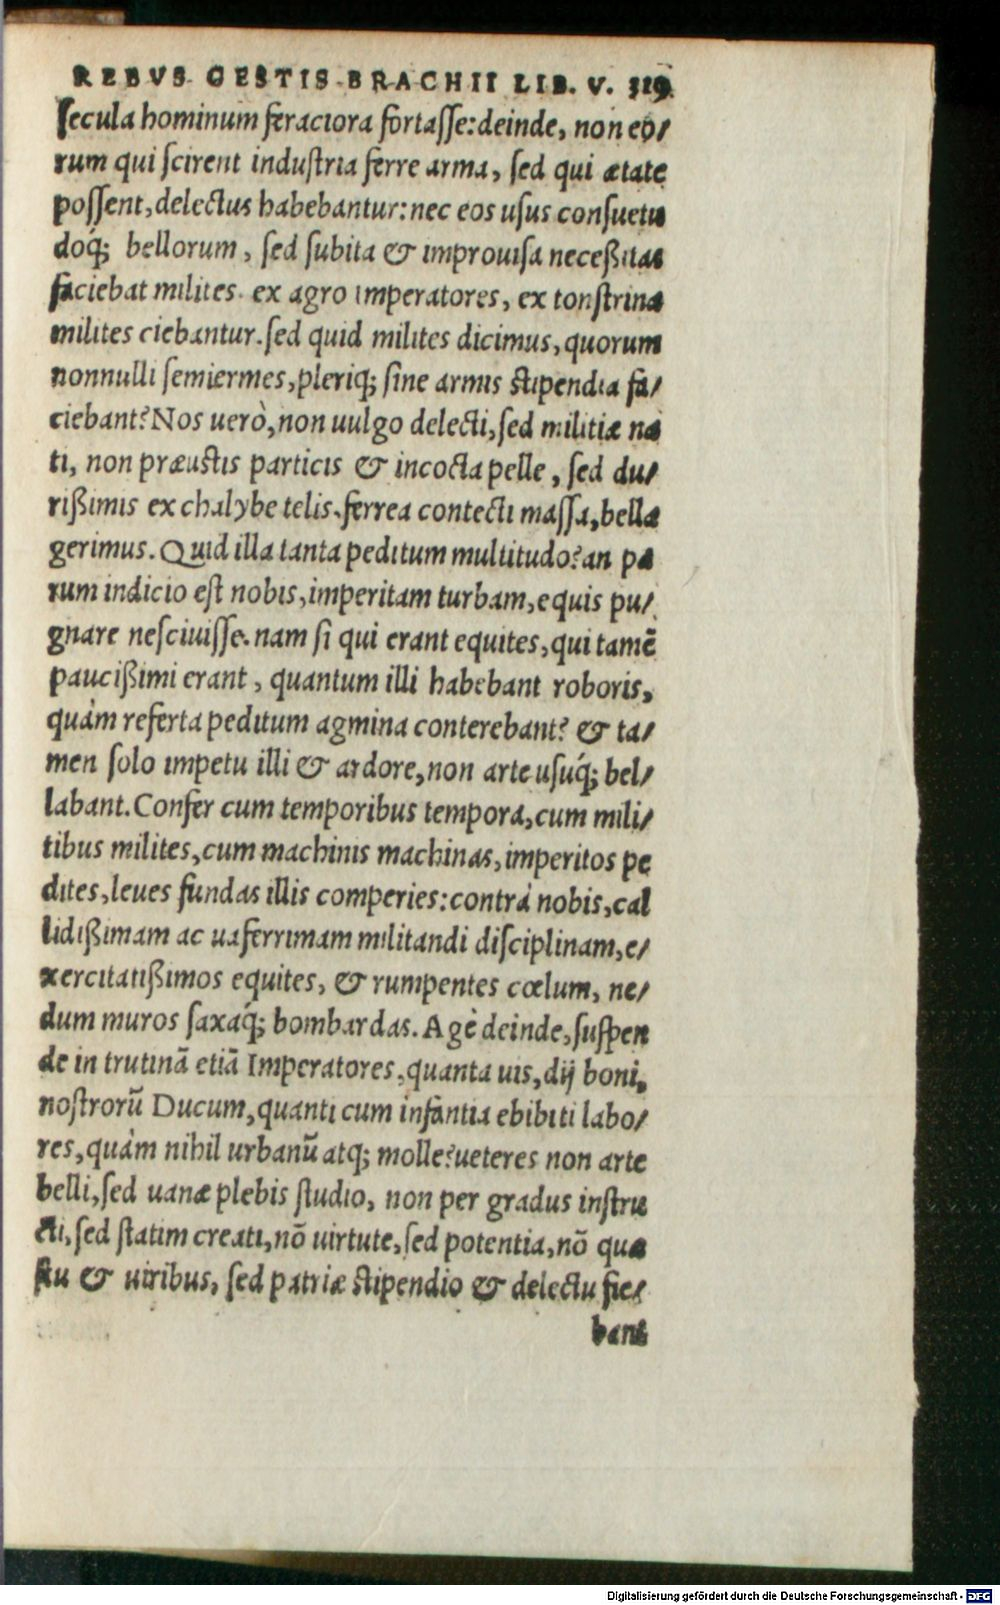 REBVS GESTIS BRACHII LIB. V. 319
secula hominum feraciora fortasse: deinde, non eo/
rum qui scirent industria ferre arma, sed qui ætate
possent, delectus habebantur: nec eos usus consuetu
doq́; bellorum, sed subita & improuisa neceßitas
faciebat milites. ex agro imperatores, ex tonstrina
milites ciebantur. sed quid milites dicimus, quorum
nonnulli semiermes, pleriq; sine armis stipendia fa/
ciebant? Nos uerò, non uulgo delecti, sed militiæ na
ti, non præustis particis & incocta pelle, sed du/
rißimis ex chalybe telis. ferrea contecti massa, bella
gerimus. Quid illa tanta peditum multitudo? an pa
rum indicio est nobis, imperitam turbam, equis pu/
gnare nesciuisse. nam si qui erant equites, qui tamē
paucißimi erant, quantum illi habebant roboris,
quàm referta peditum agmina conterebant? & ta/
men solo impetu illi & ardore, non arte usuq́; bel/
labant. Confer cum temporibus tempora, cum mili/
tibus milites, cum machinis machinas, imperitos pe
dites, leues fundas illis comperies: contrà nobis, cal
lidißimam ac uaferrimam militandi disciplinam, e/
xercitatißimos equites, & rumpentes cœlum, ne/
dum muros saxaq́; bombardas. Agè deinde, suspen
de in trutinā etiā Imperatores, quanta uis, dij boni,
nostrorū Ducum, quanti cum infantia ebibiti labo/
res, quàm nihil urbanū atq; molle? ueteres non arte
belli, sed uanæ plebis studio, non per gradus instru
cti, sed statim creati, nō uirtute, sed potentia, nō quæ
stu & uiribus, sed patriæ stipendio & delectu fie/
bant
Digitalisierung gefördert durch die Deutsche Forschungsgemeinschaft - DFG